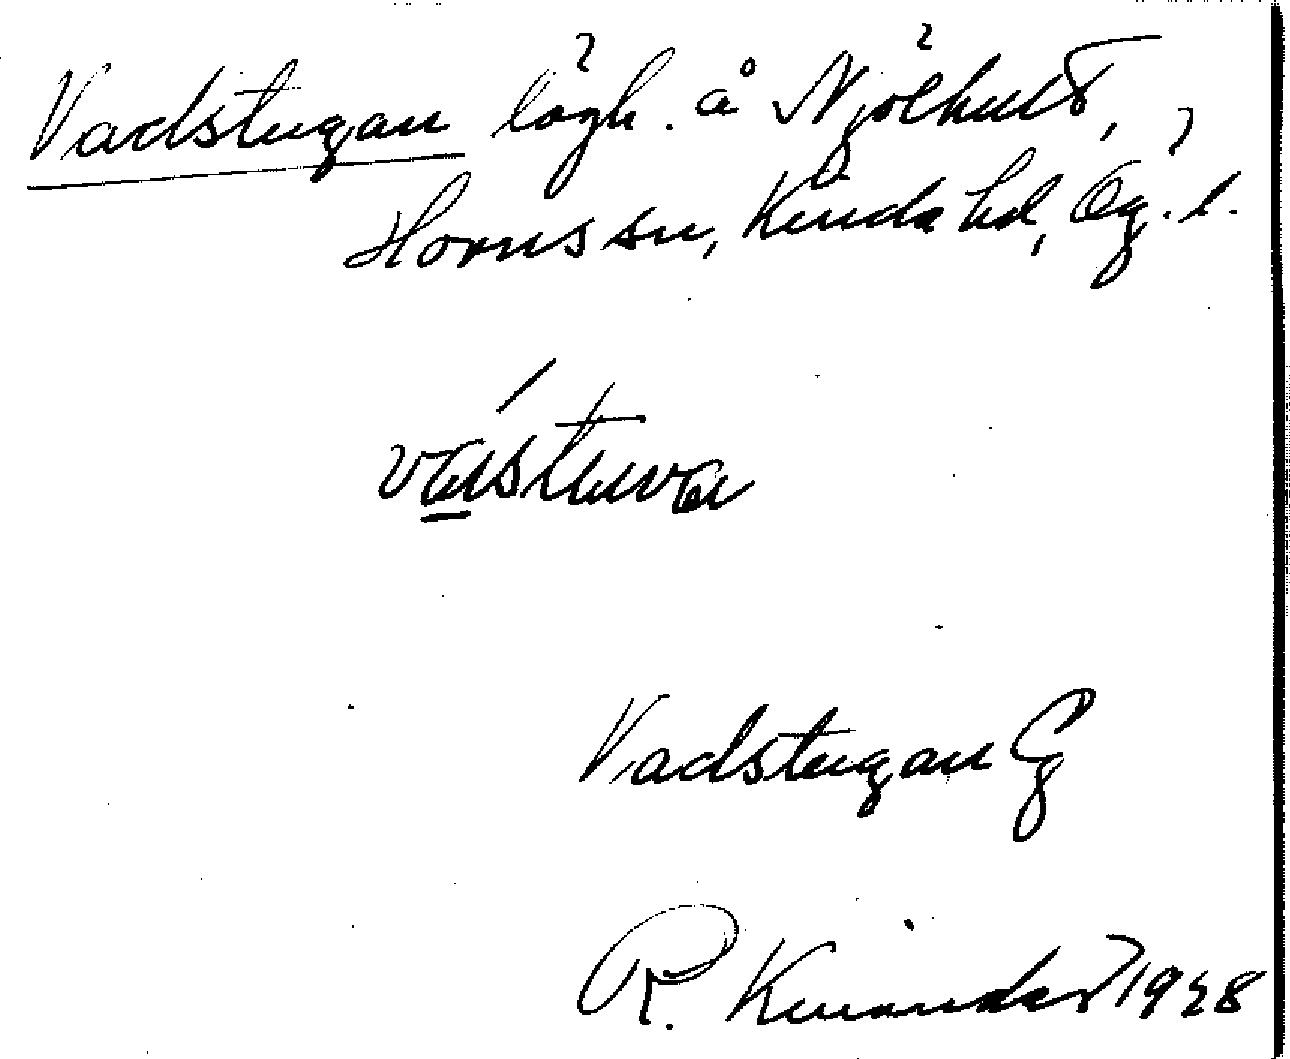 Vadstugan lägh. å Njölhult,
Horns sn, Kinda hd, Ög. l.
vástuva
Vadstugan G
R. Kinander 1928